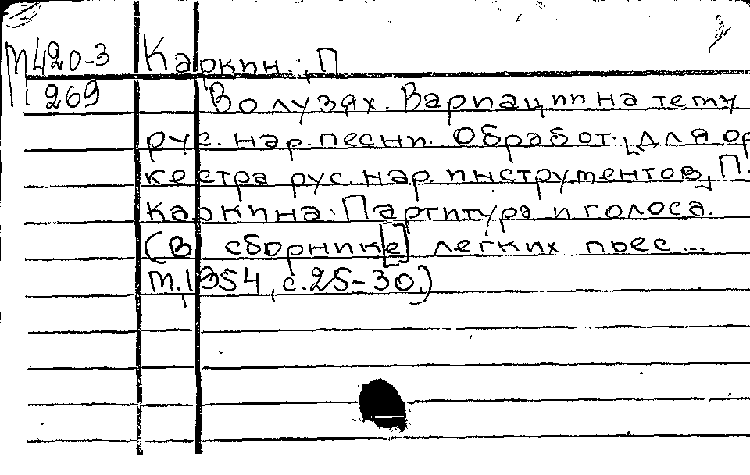 М420-3 Каркин, П.
269 Во лузях. Вариации на тему
рус. нар. песни. Обработ. для ор
кестра рус. нар. инструментов П.
Каркина. Партитура и голоса.
(В сборник[е] легких пьес...
М. 1954, с. 25-30.)